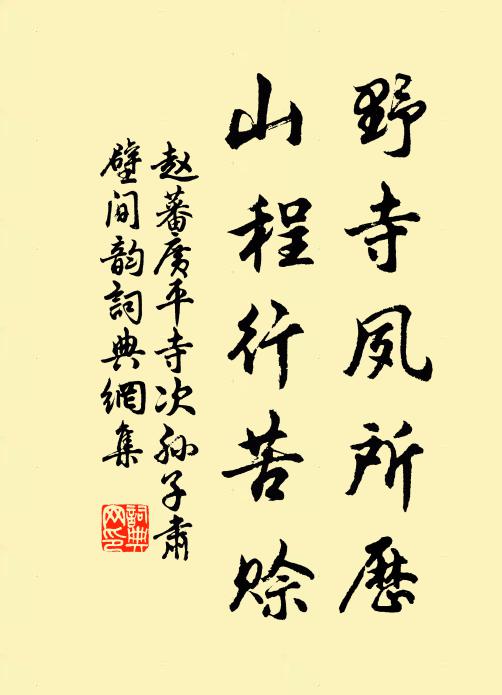 野寺夙所歷
山程行苦賒
赵蕃廣平寺次孙子肃
壁间韵詞典網集
詞典网印